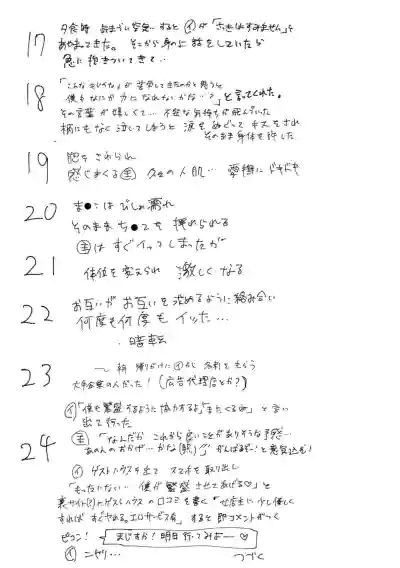 17 夕食時 気まずい空気…すると㋑が「さっきはすみません」と
あやまってきた。そこから身の上話をしていたら
急に抱きついてきて…
18 「こんな
僕もなにか力になれないかな…?」と言ってくれた。
その言葉が嬉しくて…不安な気持ちが
柄にもなく泣いてしまうと 涙をぬぐって キスをされ
そのまま身体を許した
19 胸をさわられ
感じまくる㊥ 久々の人肌… 愛撫にドキドキ
20 ま●こはびしょ濡れ
そのままち●こを挿れられる
㊥はすぐイッてしまったが
21 体位を変えられ 激しくなる
22 お互いがお互いを求めるように絡み合い
何度も何度もイッた…
・暗転
23 〜 朝 帰りがけに㋑から名刺をもらう
大手企業の人だった!(広告代理店とか?)
㋑「僕も繁盛するように協力するよ」「また来るね」と言い
出て行った
24 ㊥「なんだか これから良いことがありそうな予感…
あの人のおかげ…かな(照)」「がんばるぞ〜!と意気込む!
㋑ ゲストハウスを出て スマホを取り出し
「もったいない… 僕が繁盛させてあげる♡」と
裏サイト(?)にゲストハウスの口コミを書く「女店主に少し優しく
すれば すぐヤれる。エロサービス有」 すると即コメントがつく
ピコン! まじすか!明日行ってみよー♡
㋑ ニヤリ…
つづく